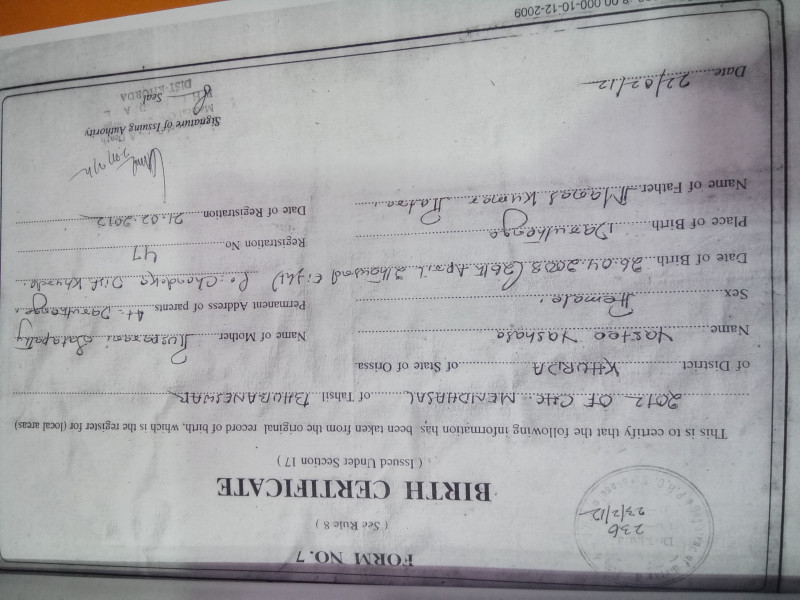 FORM NO. 7
( See Rule 8 )
236
23/2/12
BIRTH CERTIFICATE
( Issued Under Section 17 )
This is to certify that the following information has been taken from the original record of birth, which is the register for (local areas)
2012 OF CHC MENDHASAL of Tahsil BHUBANESWAR
of District KHURDA of State of Orissa
Name Yastee Yashasa Name of Mother Satapathy
Sex Female Permanent Address of parents At:- Daruthenga
Date of Birth 26.04.2008 (26th April 2Thousand Eight) Po. Chandaka Dist. Khurda
Place of Birth Daruthenga Registration No 47
Name of Father Manas Kumar Date of Registration 21.02.2012
Signature of Issuing Authority
Seal
DIST-KHURDA
Date 22/02/12
10-12-2009